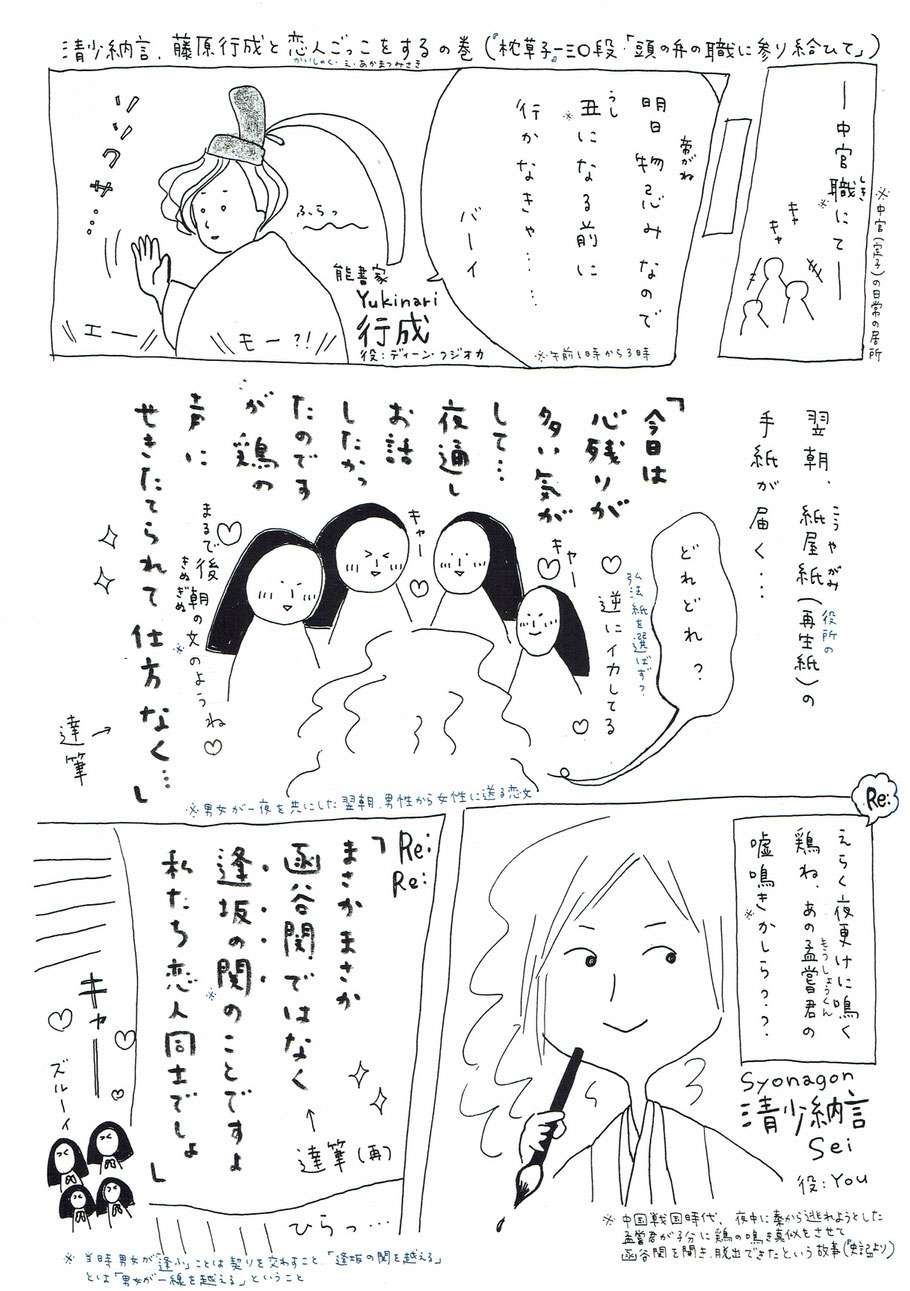 清少納言、藤原行成と恋人ごっこをするの巻（『枕草子』一三〇段・「頭の弁の職に参り給ひて」）
かいしゃく・え・あかまつみさき
―中宮職にて―
しき
※
※中宮（定子）の日常の居所
キャ
キャ
明日
帝がね
物忌みなので
うし
丑になる前に
※
行かなきゃ…
…
バーイ
※午前1時から3時
ソソクサ…
ふらっ
能書家
Yukinari
行成
役：ディーン・フジオカ
エー
モー?!
翌朝、紙屋紙（再生紙）の
こうやがみ
役所の
手紙が届く…
どれどれ？
「今日は
心残りが
多い気が
して…
夜通し
お話
したかっ
たのです
が鶏の
声に
せきたてられて仕方なく…」
キャー
キャー
弘法紙を選ばず？
逆にイカしてる
まるで後朝の文のようね
きぬぎぬ
※
達筆
※男女が一夜を共にした翌朝、男性から女性に送る恋文
Re:
えらく夜更けに鳴く
鶏ね、あの孟嘗君の
もうしょうくん
嘘鳴きかしらっ？
※
Syonagon
清少納言
Sei
役：You
※中国戦国時代、夜中に秦から逃れようとした
孟嘗君が子分に鶏の鳴き真似をさせて
函谷関を開き、脱出できたという故事（『史記』より）
Re:
Re:
「まさかまさか
函谷関ではなく
逢坂の関のことですよ
※
私たち恋人同士でしょ」
達筆（再）
ひらっ…
キャー
ズルーイ
※当時男女が「逢ふ」ことは契りを交わすこと、「逢坂の関を越える」
とは「男女が一線を越える」ということ